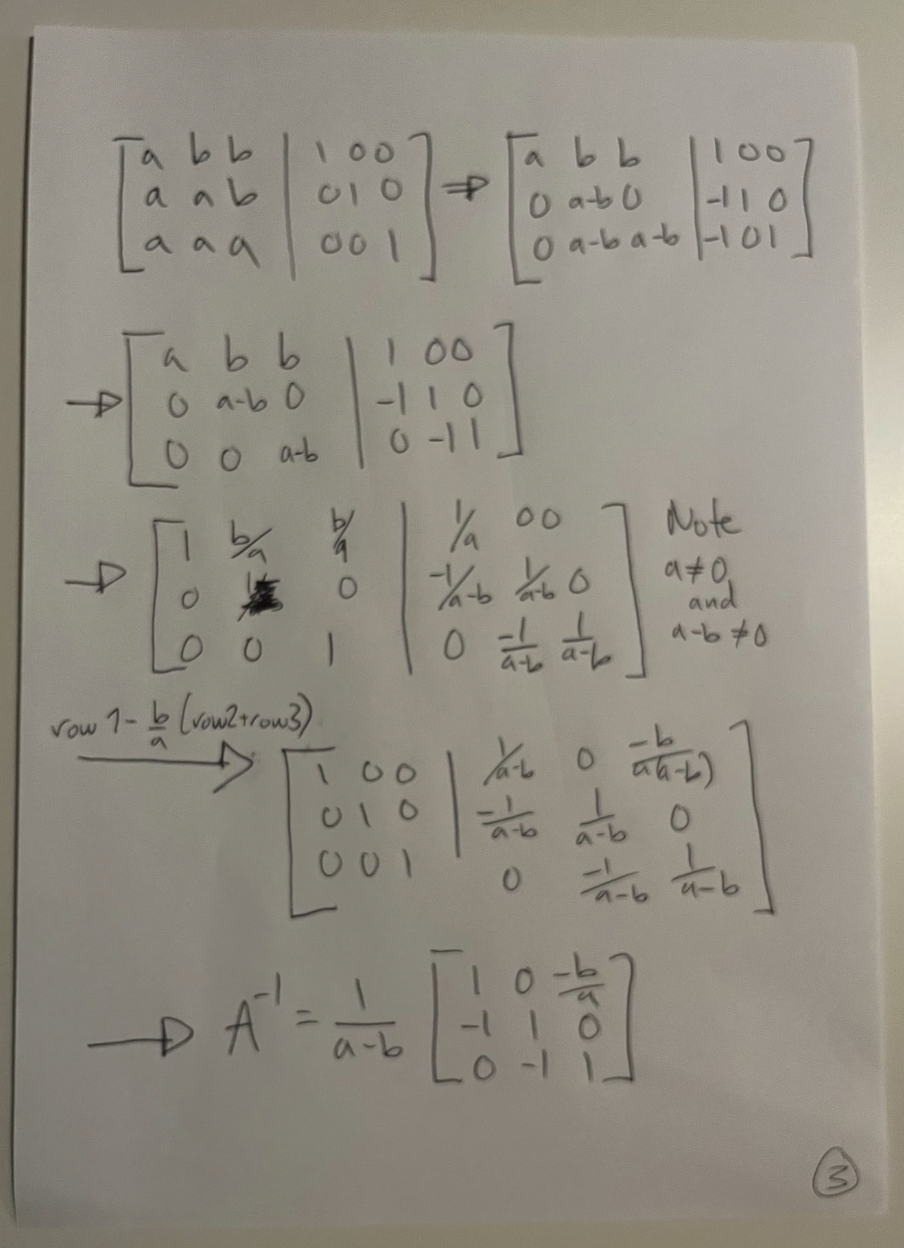 [a b b | 1 0 0] ⇒ [a b b | 1 0 0]
[a a b | 0 1 0] [0 a-b 0 | -1 1 0]
[a a a | 0 0 1] [0 a-b a-b | -1 0 1]
→ [a b b | 1 0 0]
[0 a-b 0 | -1 1 0]
[0 0 a-b | 0 -1 1]
→ [1 b/a b/a | 1/a 0 0] Note
[0 0 | -1/a-b 1/a-b 0] a≠0
and
[0 0 1 | 0 -1/a-b 1/a-b] a-b≠0
row 1 - b/a (row2+row3)
→ [1 0 0 | 1/a-b 0 -b/a(a-b)]
[0 1 0 | -1/a-b 1/a-b 0]
[0 0 1 0 -1/a-b 1/a-b]
→ A⁻¹ = 1/a-b [1 0 -b/a]
[-1 1 0]
[0 -1 1]
3